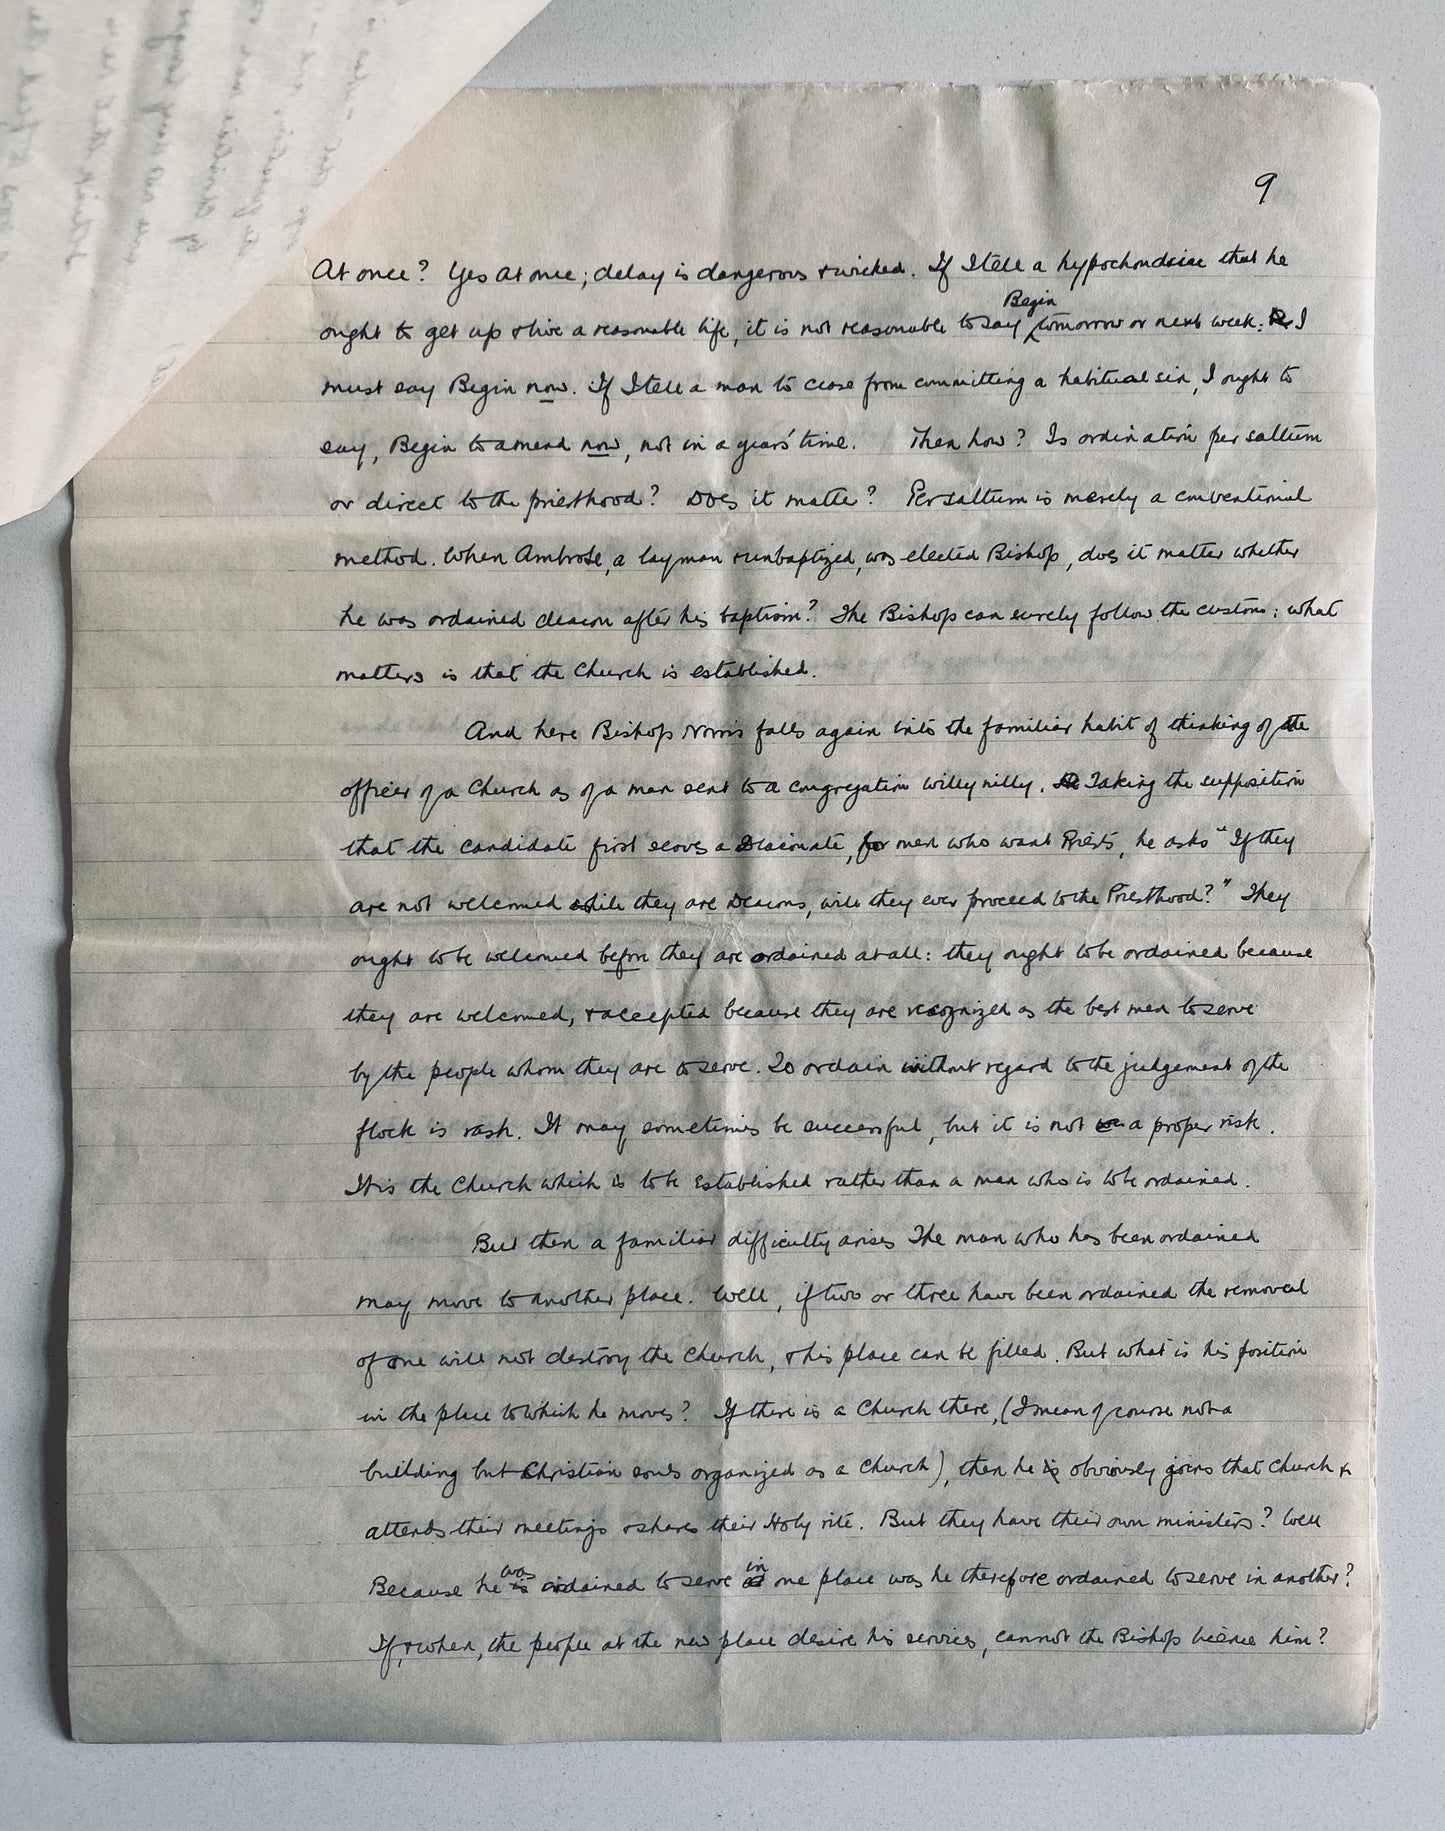 9
At once? Yes At once; delay is dangerous & wicked. If I tell a hypochondriac that he
Begin
ought to get up & live a reasonable life, it is not reasonable to say tomorrow or next week: I
must say Begin now. If I tell a man to cease from committing a habitual sin, I ought to
say, Begin to amend now, not in a years' time. Then how? Is ordination per saltum
or direct to the priesthood? Does it matter? Per saltum is merely a conventional
method. When Ambrose, a layman & unbaptized, was elected Bishop, does it matter whether
he was ordained deacon after his baptism? The Bishop can surely follow the customs: what
matters is that the Church is established.
And here Bishop Norris falls again into the familiar habit of thinking of the
officer of a Church as of a man sent to a congregation willy nilly. Taking the supposition
that the candidate first serves a Diaconate, for men who want Priests, he asks "If they
are not welcomed while they are Deacons, will they ever proceed to the Priesthood?" They
ought to be welcomed before they are ordained at all: they ought to be ordained because
they are welcomed, & accepted because they are recognized as the best men to serve
by the people whom they are to serve. To ordain without regard to the judgement of the
flock is rash. It may sometimes be successful, but it is not a proper risk.
It is the Church which is to be established rather than a man who is to be ordained.
But then a familiar difficulty arises The man who has been ordained
may move to another place. Well, if two or three have been ordained the removal
of one will not destroy the Church, & his place can be filled. But what is his position
in the place to which he moves? If there is a Church there, (I mean of course not a
building but Christian souls organized as a Church), then he obviously joins that Church &
attends their meetings & shares their Holy rite. But they have their own ministers? Well
was in
Because he is ordained to serve one place was he therefore ordained to serve in another?
If, & when, the people at the new place desire his services, cannot the Bishop licence him?